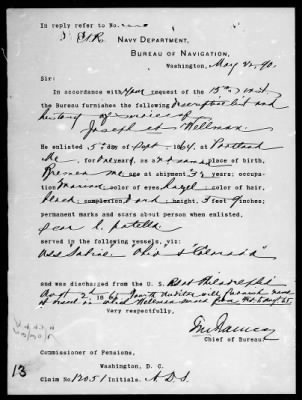 In reply refer to No.
NAVY DEPARTMENT,
BUREAU OF NAVIGATION,
Washington, May 21, 90.
Sir:
In accordance with your request of the 15th inst
the Bureau furnishes the following descriptive list and
history of service of
Joseph Wellman
He enlisted 5th of Sept, 1864, at Portland
Me, for one year, as place of birth,
Bremen Me age at shipment 32 years; occupa-
tion Mariner color of eyes, hazel color of hair,
black complexion dark height, 5 feet 9 inches;
permanent marks and scars about person when enlisted,
scar l. patella
served in the following vessels, viz:
USS Sabine Ohio & "Colorado"
and was discharged from the U.S. at Philadelphia
1865 Fourth Auditor will furnish name
of vessel in which Wellman served from
Very respectfully,
Chief of Bureau
Commissioner of Pensions,
Washington, D. C.
13
Claim No. 12051 Initials. A.D.S.